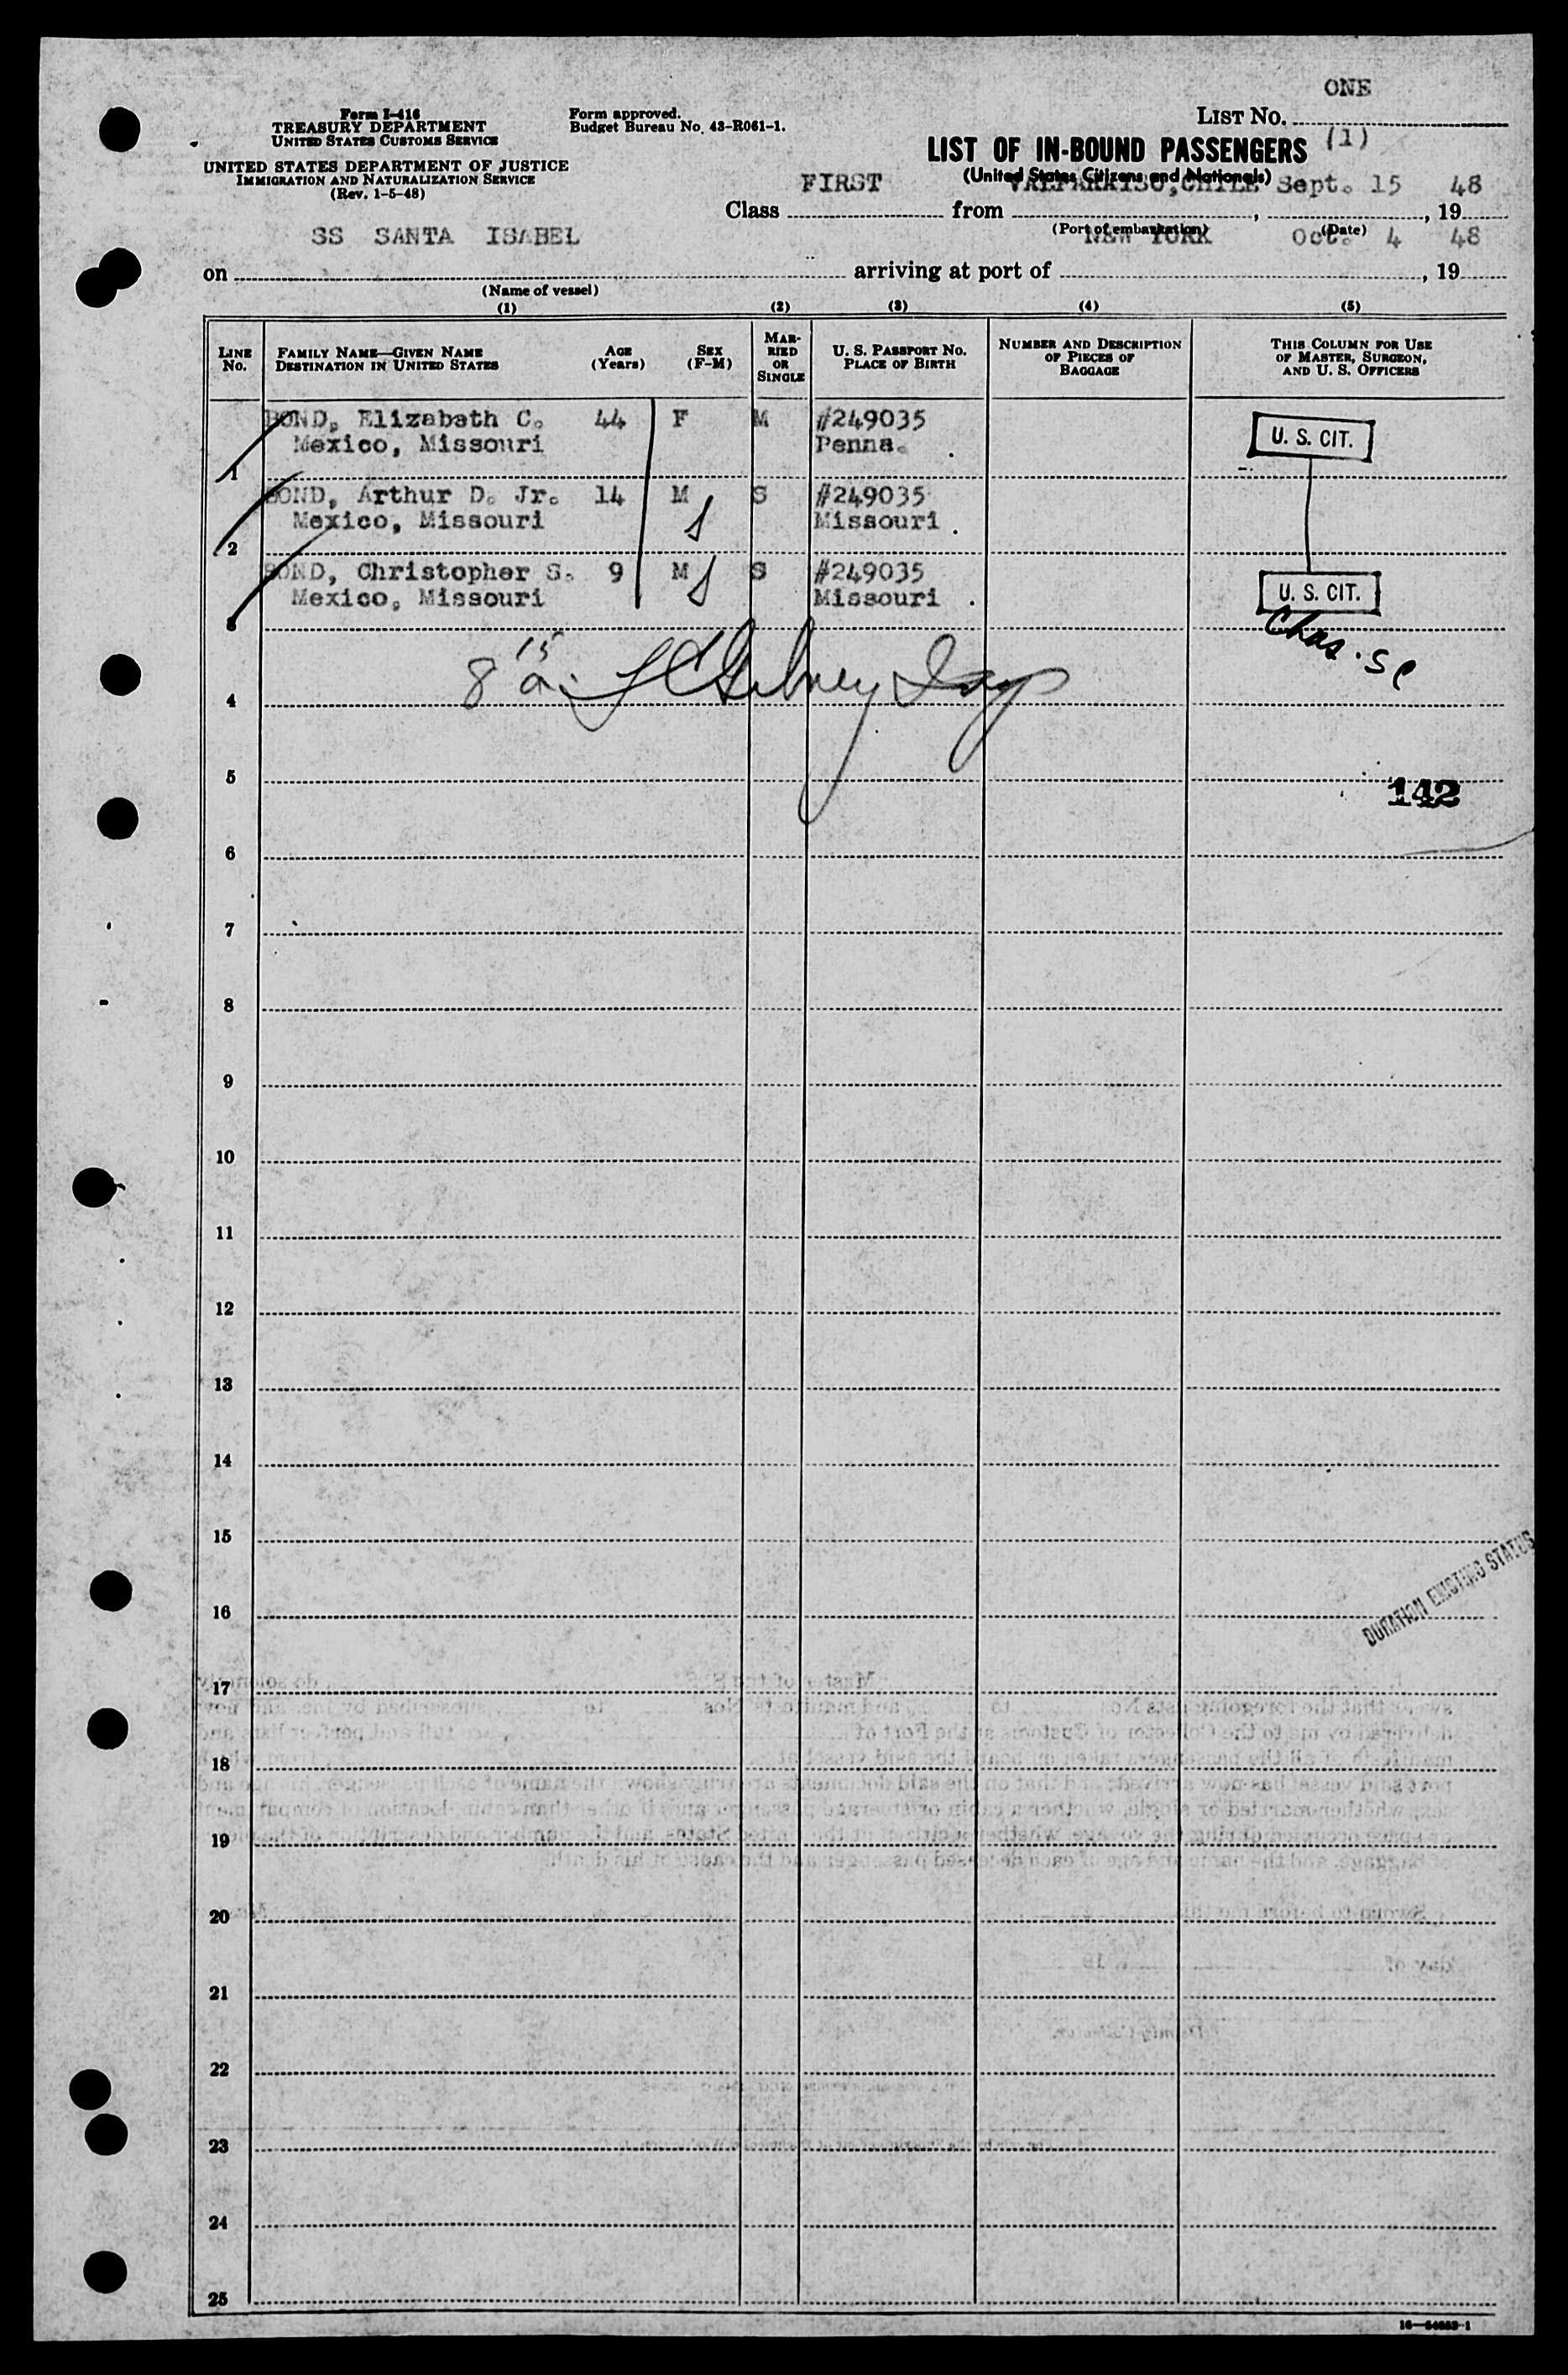 ONE
Form I-416
TREASURY DEPARTMENT
UNITED STATES CUSTOMS SERVICE
UNITED STATES DEPARTMENT OF JUSTICE
IMMIGRATION AND NATURALIZATION SERVICE
(Rev. 1-5-48)
Form approved.
Budget Bureau No. 43-R061-1.
LIST No.
(1)
LIST OF IN-BOUND PASSENGERS
(United States Citizens and Nationals)
FIRST VALPARAISO, CHILE Sept. 15 48
Class from , , 19
(Port of embarkation) (Date)
SS SANTA ISABEL NEW YORK Oct. 4 48
on arriving at port of , 19
(Name of vessel)
(1) (2) (3) (4) (5)
LINE No.
FAMILY NAME—GIVEN NAME
DESTINATION IN UNITED STATES
AGE (Years)
SEX (F-M)
MARRIED OR SINGLE
U. S. PASSPORT No.
PLACE OF BIRTH
NUMBER AND DESCRIPTION OF PIECES OF BAGGAGE
THIS COLUMN FOR USE OF MASTER, SURGEON, AND U. S. OFFICERS
BOND, Elizabeth C. 44 F M #249035 U. S. CIT.
Mexico, Missouri Penna.
1
BOND, Arthur D. Jr. 14 M S #249035
Mexico, Missouri Missouri
2
BOND, Christopher S. 9 M S #249035 U. S. CIT.
Mexico, Missouri Missouri
3
Chas. SC
8 15 a
4
5
142
6
7
8
9
10
11
12
13
14
15
DURATION EXISTING STATUS
16
17
18
19
20
21
22
23
24
25